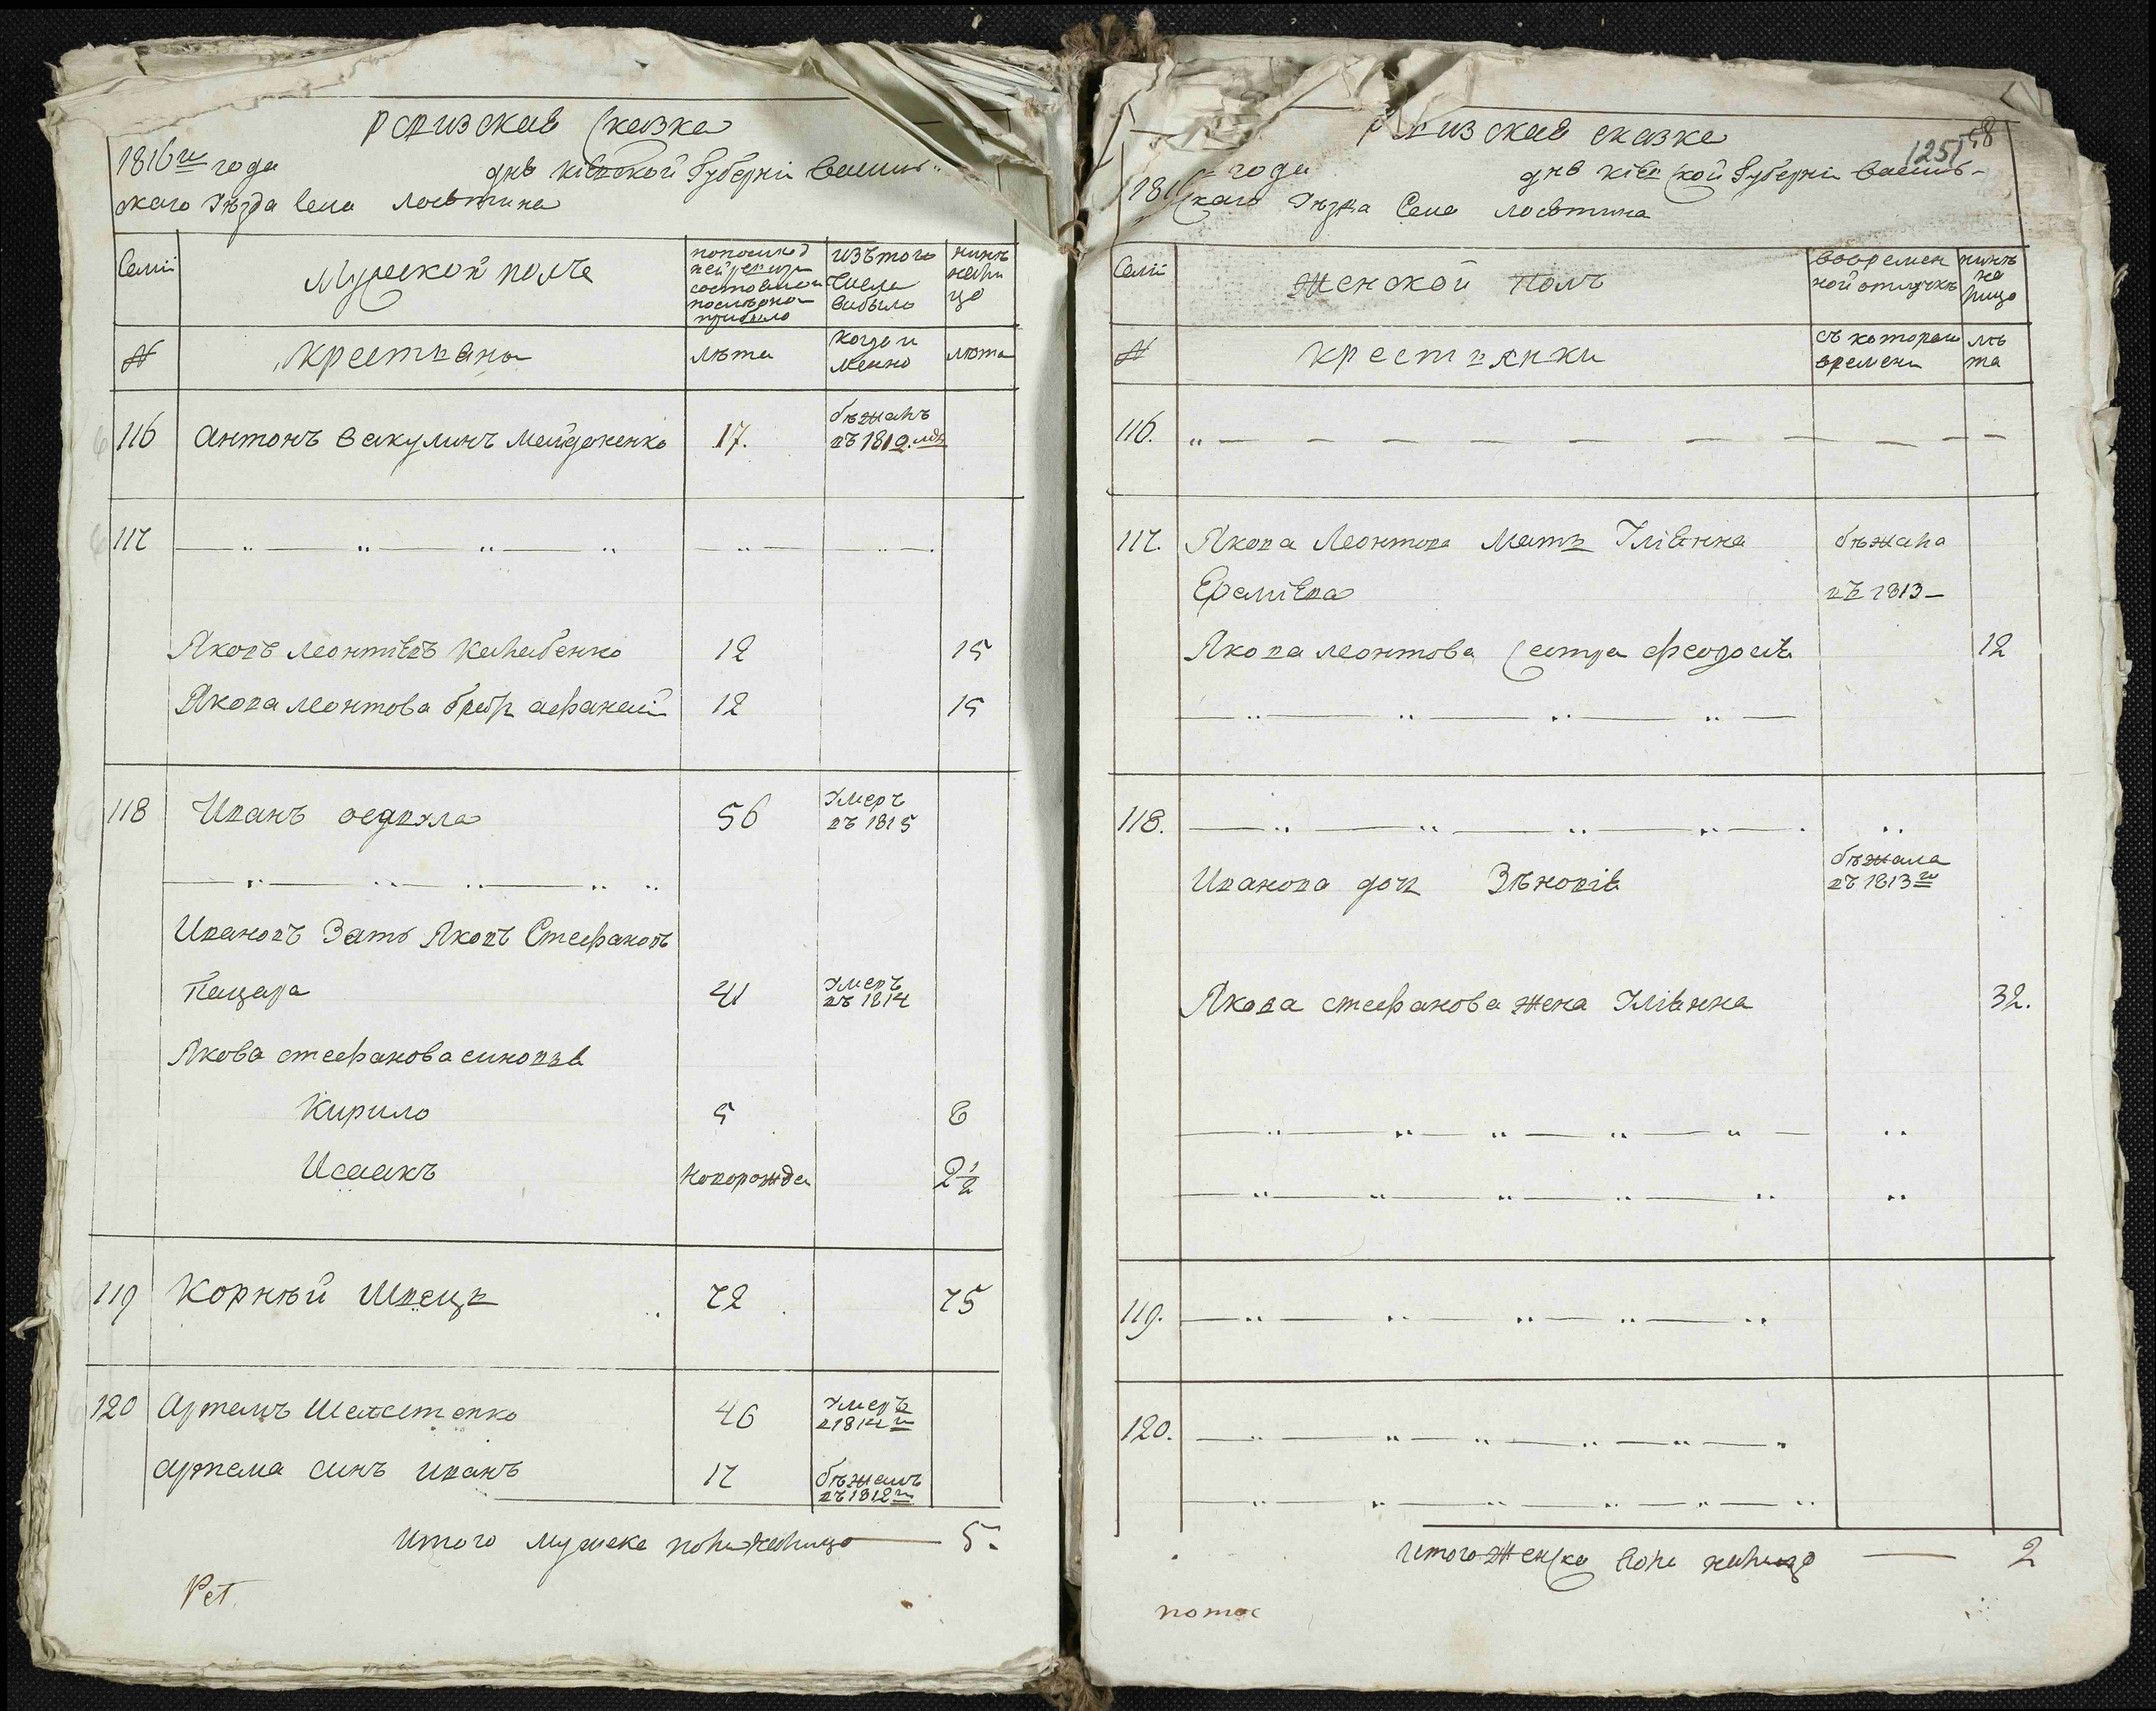 Ревизская Сказка
1816го года дня кіевской Губерніи василь-
скаго Уезда села лосятина
Семіи
Мужескои полъ
по последней ревизіи состояло и после оной прибыло
изъ того числа выбыло
нынѣ на лицо
№
крестьяна
лѣта
когда именно
лѣта
116 антонъ вакулинъ майданенко 17. бѣжалъ въ 1812.мъ
117
Яковъ леонтіевъ 12 15
Якова леонтова братъ афанасій 12 15
118 Иванъ недвяла 56 Умеръ въ 1815
Ивановъ Зять Яковъ Стефановъ
Пацара 41 Умеръ въ 1814
Якова стефанова синовья
Кирило 5 8
Исаакъ новорожде 2 1/2
119 Корнѣй Швець 72 75
120 Артемъ 46 Умеръ в 1814го
артема синъ иванъ 17 бѣжалъ въ 1812го
итого мужеска пола на лицо 5.
Ret.
Ревизская сказка
1251 58
1816 года дня кіевской Губерніи василь-
скаго Уезда Села лосятина
Семіи
Женской полъ
во временной отлучкѣ
нынѣ на лицо
№
крестьянки
съ котораго времени
лѣта
116.
117. Якова Леонтова Мать Уліянна бѣжала
Ереміева въ 1813
Якова леонтова сестра феодосія 12
118.
Иванова дочь Зѣновія бѣжала въ 1813го
Якова стефанова жена Уліянна 32.
119.
120.
итого женска пола на лицо 2